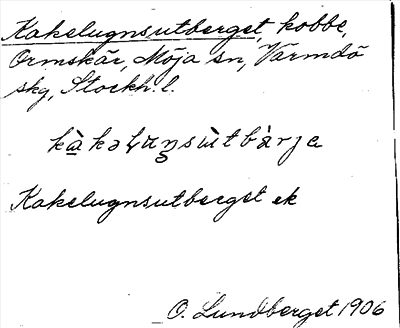 Kakelugnsutberget, kobbe,
Ormskär, Möja sn, Värmdö
skg, Stockh. l.
kàkəluŋsùtbàrje
Kakelugnsutberget ek
O. Lundberget 1906